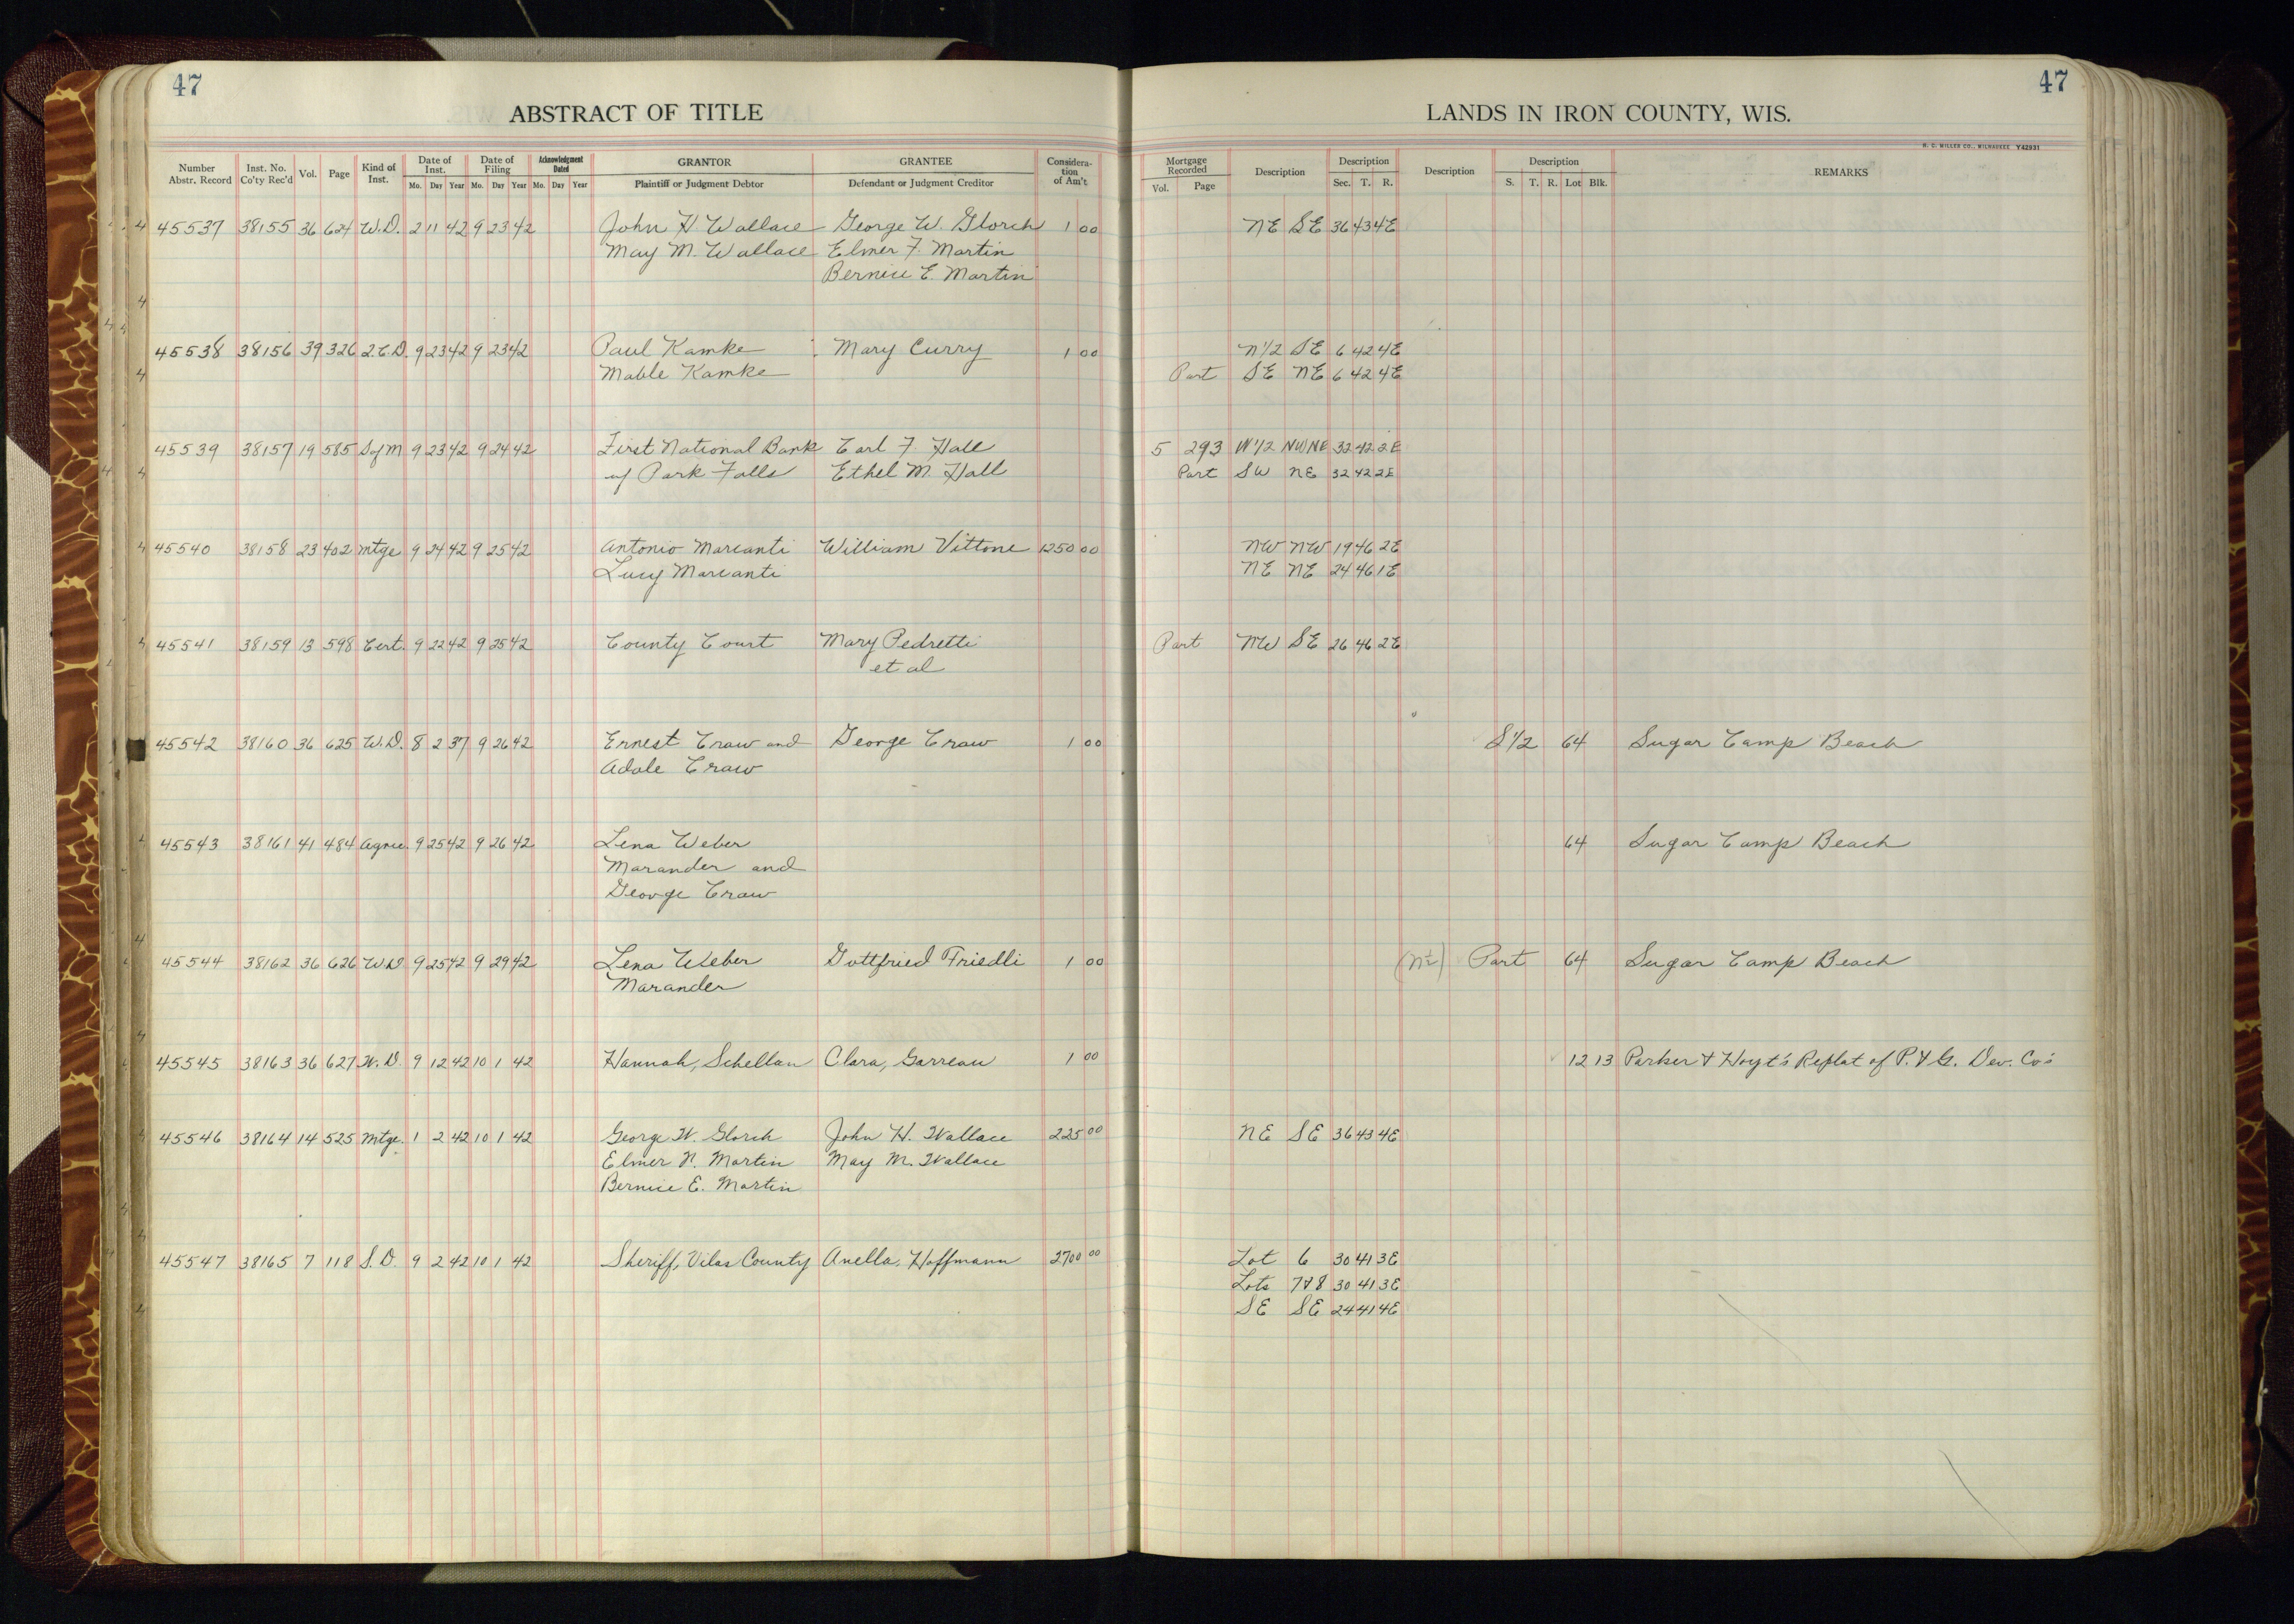 47
47
ABSTRACT OF TITLE
LANDS IN IRON COUNTY, WIS.
H. C. MILLER CO., MILWAUKEE Y42931
Number Abstr. Record Inst. No. Co'ty Rec'd Vol. Page Kind of Inst. Date of Inst. Mo. Day Year Date of Filing Mo. Day Year Acknowledgment Dated Mo. Day Year GRANTOR Plaintiff or Judgment Debtor GRANTEE Defendant or Judgment Creditor Considera-tion of Am't Mortgage Recorded Vol. Page Description Description Sec. T. R. Description Description S. T. R. Lot Blk. REMARKS
45537 38155 36 624 W.D. 2 11 42 9 23 42 John H Wallace George W. Glorch 1 00 NE SE 36 43 4E
May M. Wallace Elmer F. Martin
Bernice E. Martin
45538 38156 39 326 2.C.D. 9 23 42 9 23 42 Paul Kamke Mary Curry 1 00 N 1/2 SE 6 42 4E
Mable Kamke Part SE NE 6 42 4E
45539 38157 19 585 S of M 9 23 42 9 24 42 First National Bank Carl F. Hall 5 293 W 1/2 NW NE 32 42 2E
of Park Falls Ethel M. Hall Part SW NE 32 42 2E
45540 38158 23 402 Mtge 9 24 42 9 25 42 Antonio Marcanti William Vittone 1250 00 NW NW 19 46 2E
Lucy Marcanti NE NE 24 46 1E
45541 38159 13 598 Cert. 9 22 42 9 25 42 County Court Mary Pedretti Part NW SE 26 46 2E
et al
45542 38160 36 625 W.D. 8 2 37 9 26 42 Ernest Craw and George Craw 1 00 S 1/2 64 Sugar Camp Beach
Adale Craw
45543 38161 41 484 Agree. 9 25 42 9 26 42 Lena Weber 64 Sugar Camp Beach
Marander and
George Craw
45544 38162 36 626 W.D 9 25 42 9 29 42 Lena Weber Gottfried Friedli 1 00 (N 1/2) Part 64 Sugar Camp Beach
Marander
45545 38163 36 627 W.D. 9 12 42 10 1 42 Hannah, Schellau Clara, Garreau 1 00 12 13 Parker & Hoyt's Replat of P. & G. Dev. Co's
45546 38164 14 525 Mtge. 1 2 42 10 1 42 George W. Glorch John H. Wallace 225 00 NE SE 36 43 4E
Elmer F. Martin May M. Wallace
Bernice E. Martin
45547 38165 7 118 S.D. 9 2 42 10 1 42 Sheriff, Vilas County Anella, Hoffmann 2700 00 Lot 6 30 41 3E
Lots 7 & 8 30 41 3E
SE SE 24 41 4E